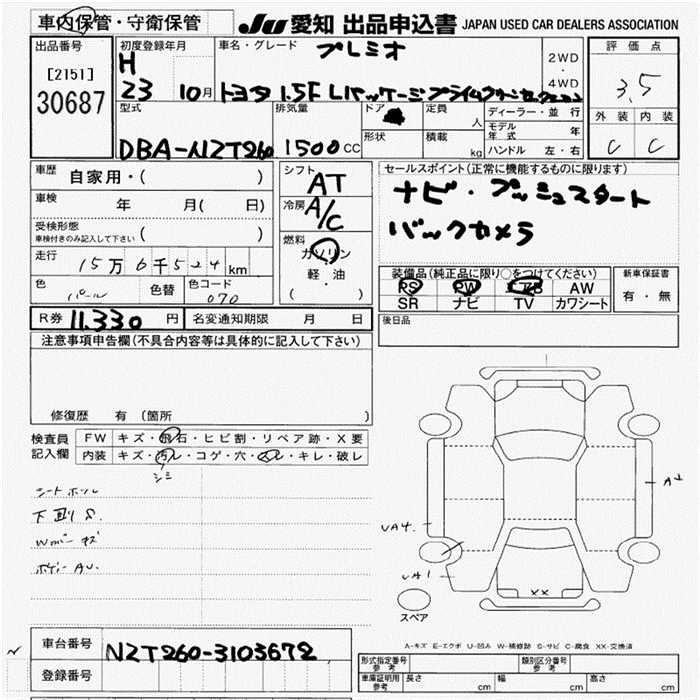 車内保管・守衛保管
JU 愛知 出品申込書 JAPAN USED CAR DEALERS ASSOCIATION
出品番号
[2151]
30687
初度登録年月
H
23 10月
車名・グレード
プレミオ
トヨタ 1.5F Lパッケージプライムグリーンセレクション
2WD
・
4WD
評価点
3.5
外装 内装
C C
型式
DBA-NZT260
排気量
1500 CC
ドア
形状
定員 人
積載 kg
ディーラー・並行
モデル年式 年
ハンドル 左・右
車歴 自家用・( )
車検 年 月( 日)
受検形態
車検付きのみ記入して下さい ( )
走行 15万6千524 km
色 パール 色替 色コード 070
シフト AT
冷房 A/C
燃料
ガソリン
軽・油
( )
セールスポイント(正常に機能するものに限ります)
ナビ・プッシュスタート
バックカメラ
装備品(純正品に限り○をつけてください)
PS PW エアB AW
SR ナビ TV カワシート
新車保証書
有・無
R券 11.330 円 名変通知期限 月 日
後日品
注意事項申告欄(不具合内容等は具体的に記入して下さい)
修復歴 有(箇所 )
検査員記入欄
FW キズ・飛石・ヒビ割・リペア跡・X要
内装 キズ・汚レ・コゲ・穴・スレ・キレ・破レ
シミ
シートホツレ
下廻りS.
Wガバーキズ
ボディーAU.
A2
UA4.
UA1
XX
スペア
A-キズ E-エクボ U-凹み W-補修跡 S-サビ C-腐食 XX-交換済
車台番号 NZT260-3103672
登録番号
形式指定番号
参考
類別区分番号
参考
車庫証明用
参考
長さ cm 幅 cm 高さ cm